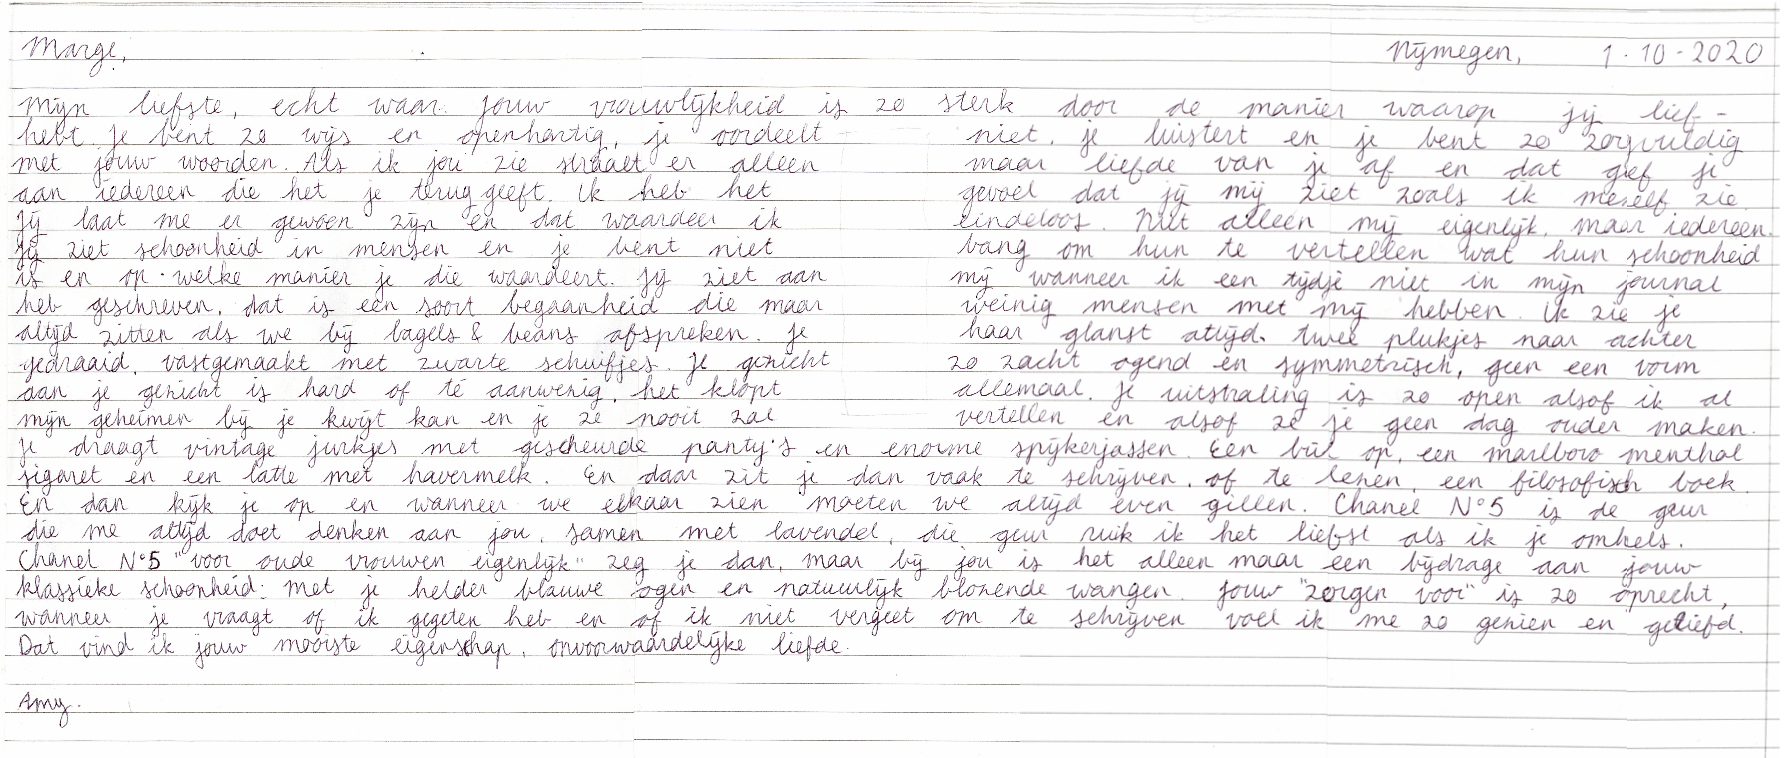 Marge,
Nijmegen, 1-10-2020
Mijn liefste, echt waar. Jouw vrouwlijkheid is zo sterk door de manier waarop jij lief-
hebt. Je bent zo wijs en openhartig, je oordeelt niet. Je luistert en je bent zo zorgvuldig
met jouw woorden. Als ik jou zie straalt er alleen maar liefde van je af en dat geef je
aan iedereen die het je terug geeft. Ik heb het gevoel dat jij mij ziet zoals ik mezelf zie.
Jij laat me er gewoon zijn en dat waardeer ik eindeloos. Niet alleen mij eigenlijk, maar iedereen.
Jij ziet schoonheid in mensen en je bent niet bang om hun te vertellen wat hun schoonheid
is en op welke manier je die waardeert. Jij ziet aan mij wanneer ik een tijdje niet in mijn journal
heb geschreven, dat is een soort begaanheid die maar weinig mensen met mij hebben. Ik zie je
altijd zitten als we bij bagels & beans afspreken. Je haar glanst altijd. twee plukjes naar achter
gedraaid, vastgemaakt met zwarte schuifjes. Je gezicht zo zacht ogend en symmetrisch, geen een vorm
aan je gezicht is hard of té aanwezig, het klopt allemaal. Je uitstraling is zo open alsof ik al
mijn geheimen bij je kwijt kan en je ze nooit zal vertellen en alsof ze je geen dag ouder maken.
Je draagt vintage jurkjes met gescheurde panty's en enorme spijkerjassen. Een bril op, een marlboro menthol
sigaret en een latte met havermelk. En daar zit je dan vaak te schrijven, of te lezen, een filosofisch boek.
En dan kijk je op en wanneer we elkaar zien moeten we altijd even gillen. Chanel N°5 is de geur
die me altijd doet denken aan jou, samen met lavendel, die geur ruik ik het liefst als ik je omhels.
Chanel N°5 "voor oude vrouwen eigenlijk" zeg je dan, maar bij jou is het alleen maar een bijdrage aan jouw
klassieke schoonheid: met je helder blauwe ogen en natuurlijk blozende wangen. Jouw "zorgen voor" is zo oprecht,
wanneer je vraagt of ik gegeten heb en of ik niet vergeet om te schrijven voel ik me zo gezien en geliefd.
Dat vind ik jouw mooiste eigenschap, onvoorwaardelijke liefde.
Amy.